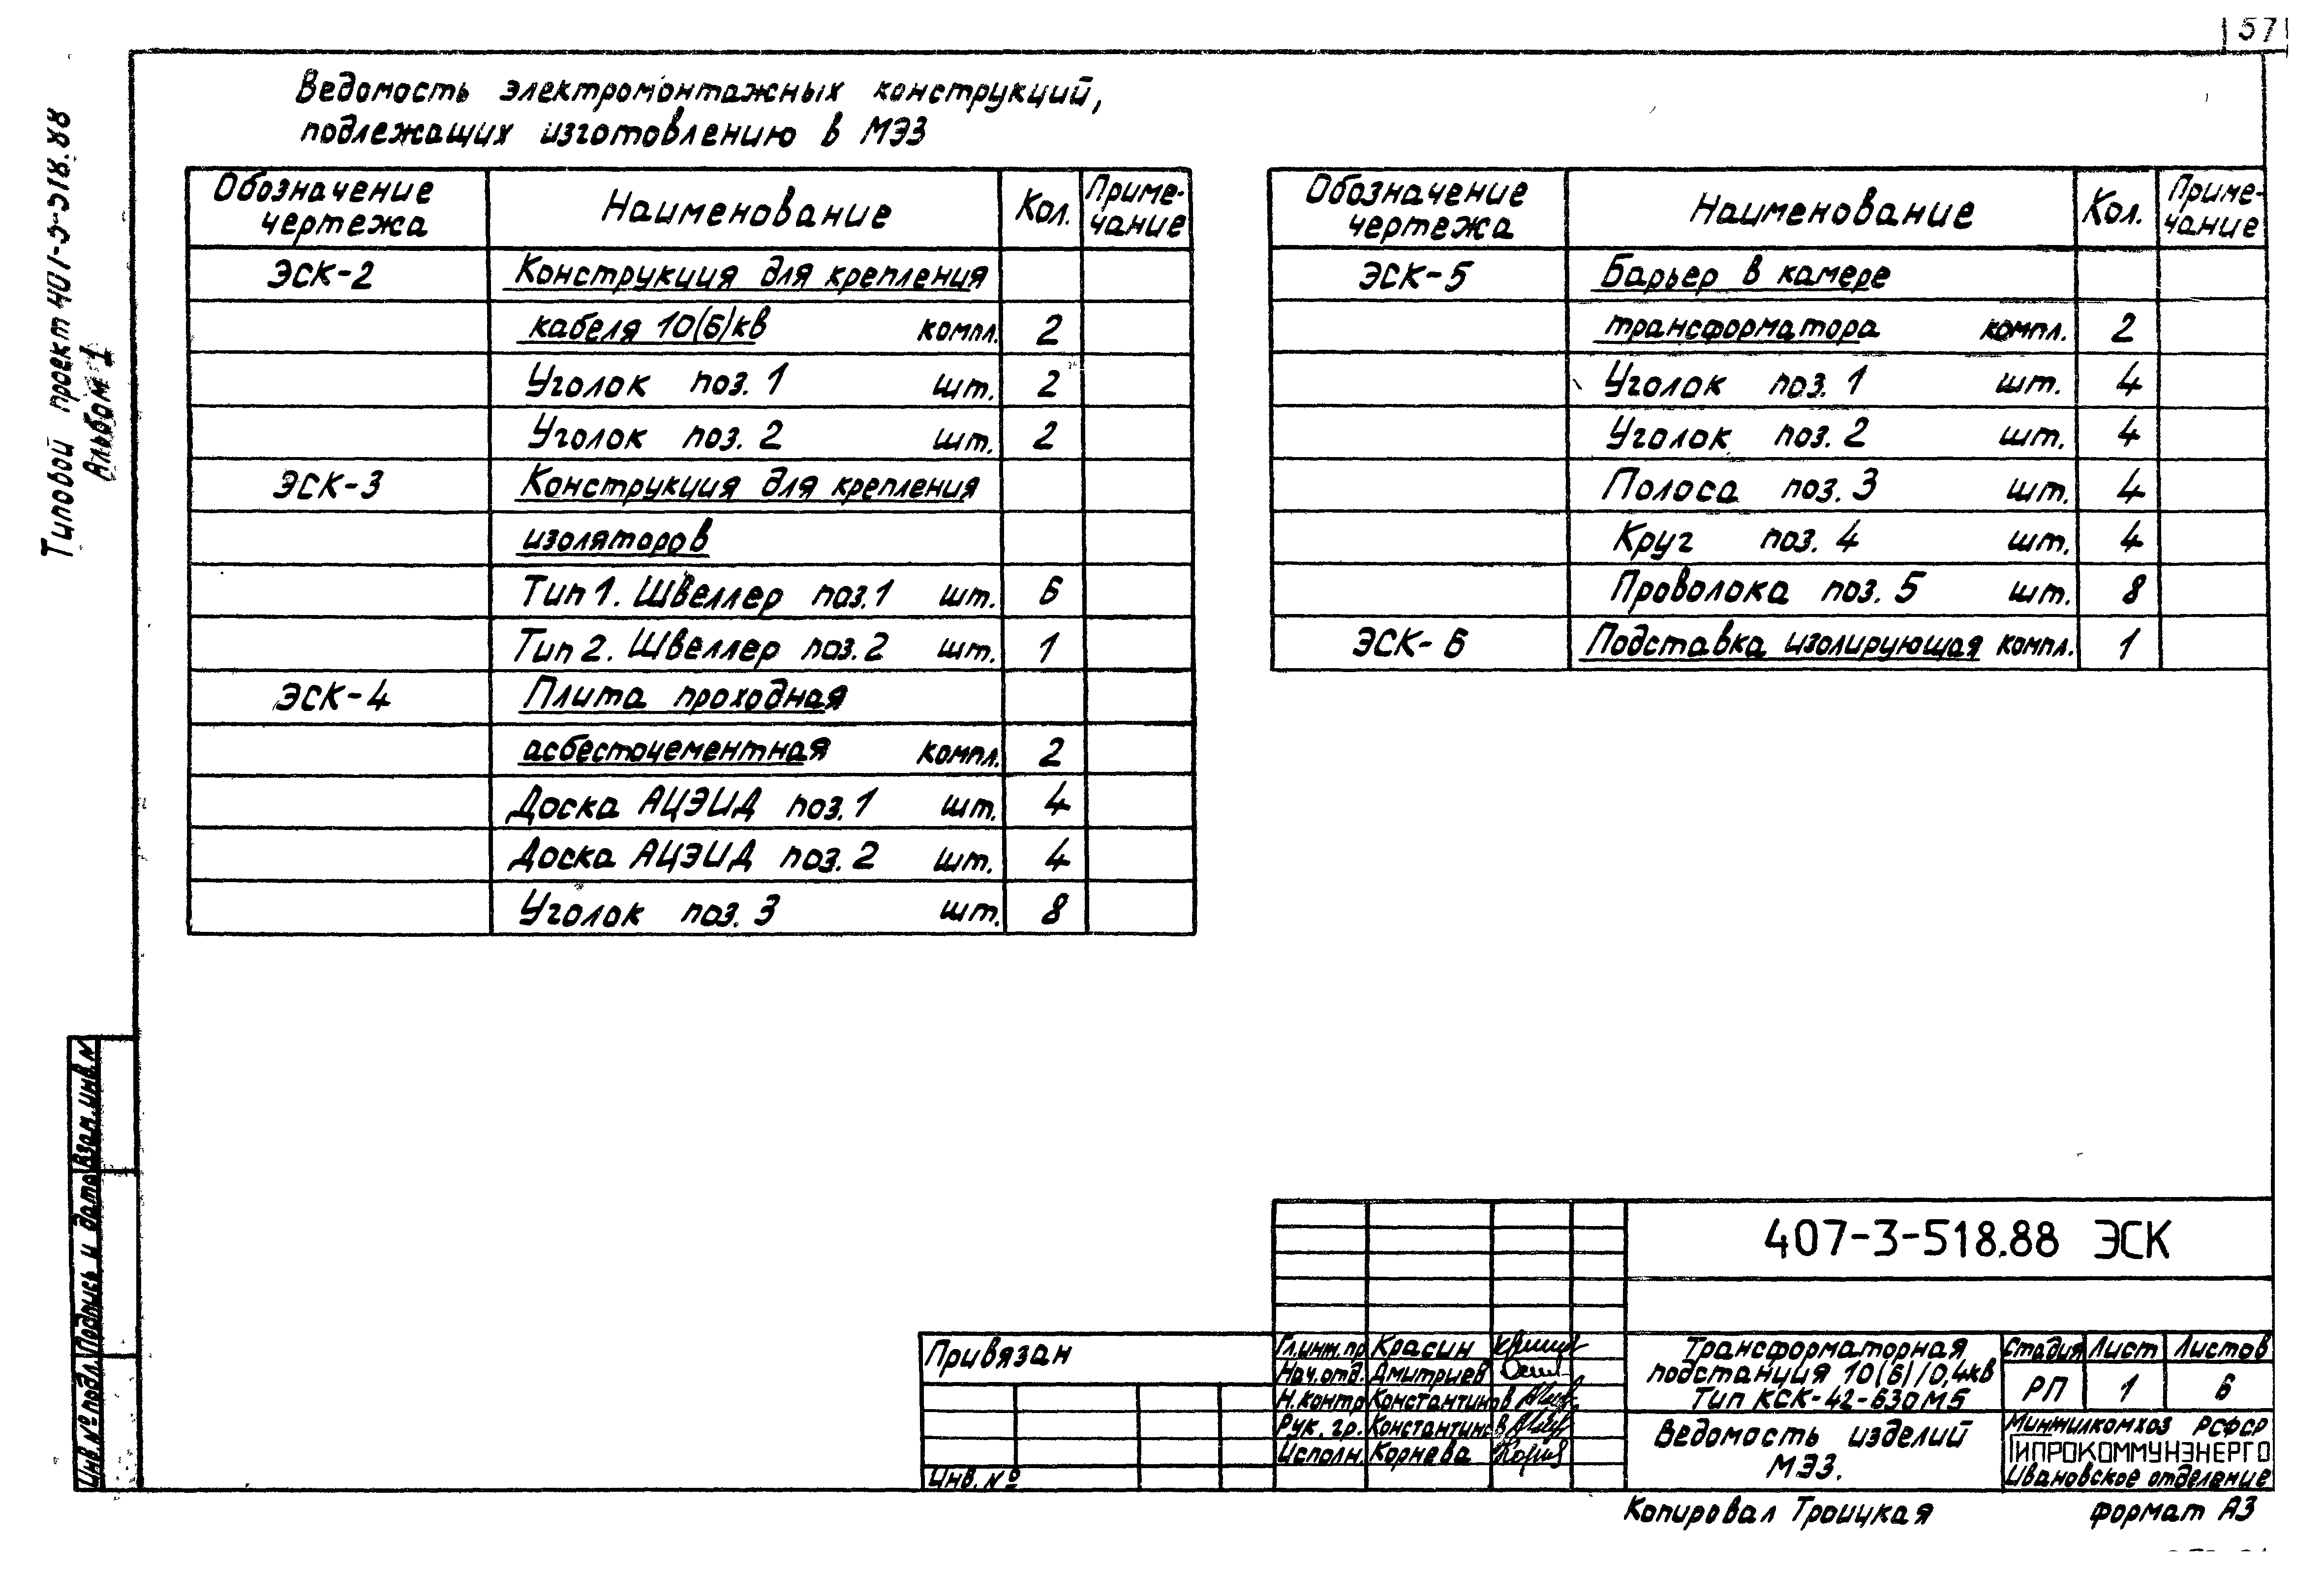 57
Типовой проект 407-3-518.88
Альбом 1
Ведомость электромонтажных конструкций,
подлежащих изготовлению в МЭЗ
Обозначение чертежа Наименование Кол. Приме-чание
ЭСК-2 Конструкция для крепления
кабеля 10(6)кв компл. 2
Уголок поз. 1 шт. 2
Уголок поз. 2 шт. 2
ЭСК-3 Конструкция для крепления
изоляторов
Тип 1. Швеллер поз.1 шт. 6
Тип 2. Швеллер поз.2 шт. 1
ЭСК-4 Плита проходная
асбестоцементная компл. 2
Доска АЦЭИД поз.1 шт. 4
Доска АЦЭИД поз.2 шт. 4
Уголок поз.3 шт. 8
Обозначение чертежа Наименование Кол. Приме-чание
ЭСК-5 Барьер в камере
трансформатора компл. 2
Уголок поз. 1 шт. 4
Уголок поз. 2 шт. 4
Полоса поз. 3 шт. 4
Круг поз. 4 шт. 4
Проволока поз. 5 шт. 8
ЭСК-6 Подставка изолирующая компл. 1
Взам.инв.№
Подпись и дата
Инв.№ подл.
407-3-518.88 ЭСК
Привязан
Инв. №
Гл.инж.пр Красин
Нач.отд. Дмитриев
Н.контр Константинов
Рук. гр. Константинов
Исполн. Корнева
Трансформаторная
подстанция 10(6)/0,4кв
Тип КСК-42-630М5
Стадия Лист Листов
РП 1 6
Ведомость изделий
МЭЗ.
Минжилкомхоз РСФСР
ГИПРОКОММУНЭНЕРГО
Ивановское отделение
Копировал Троицкая формат А3